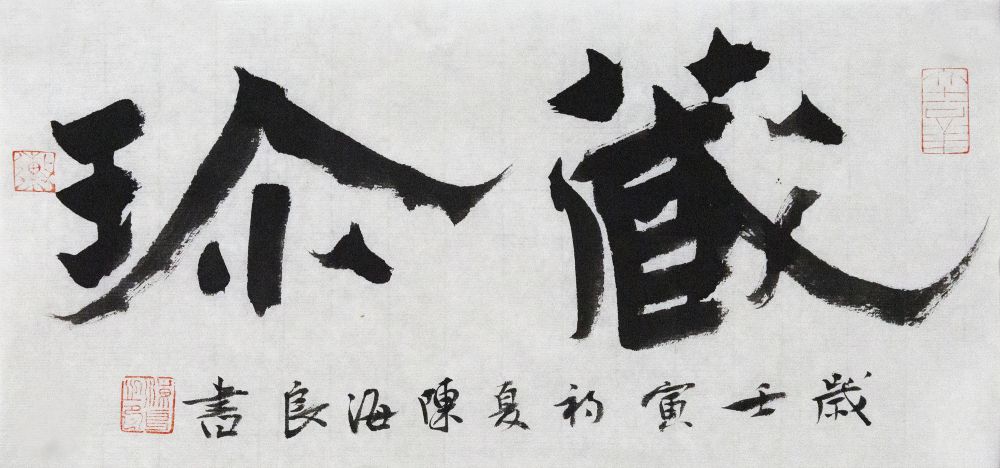 藏珍
歲壬寅初夏陳海良書